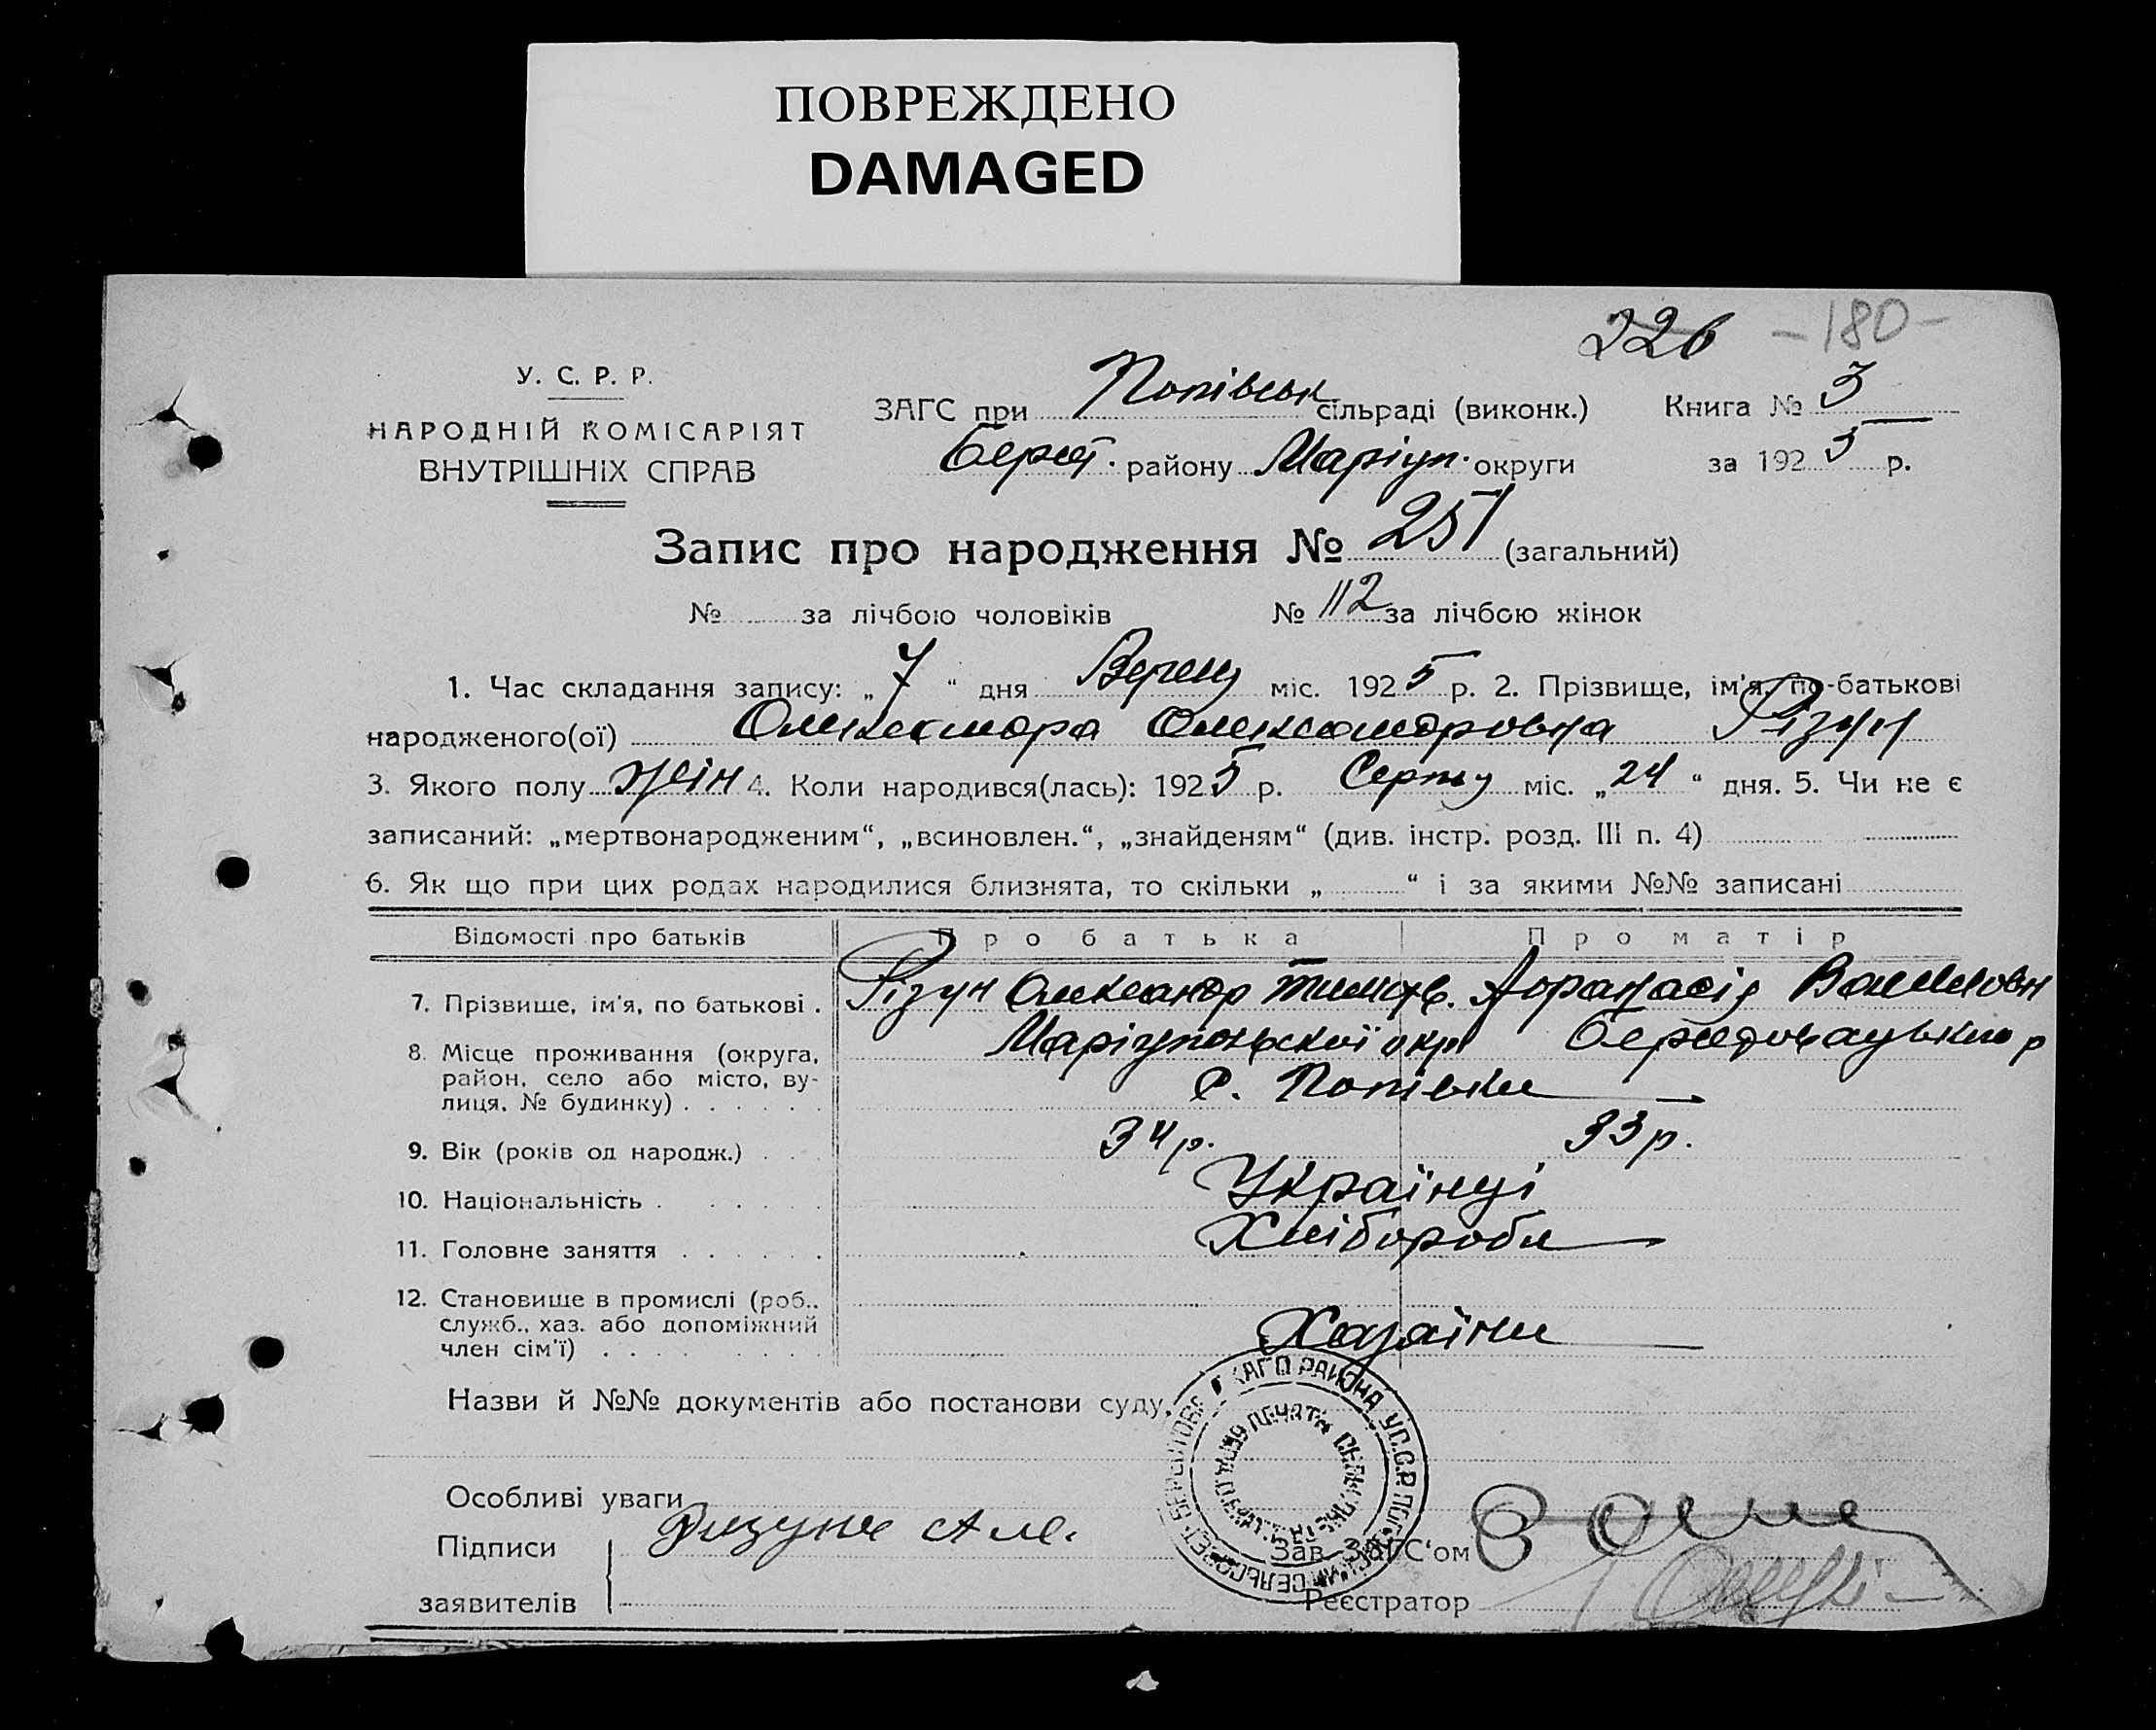 ПОВРЕЖДЕНО
DAMAGED
226 -180-
У. С. Р. Р.
НАРОДНІЙ КОМІСАРІЯТ
ВНУТРІШНІХ СПРАВ
ЗАГС при Попівськ сільраді (виконк.) Книга № 3
Берет. району Маріуп. округи за 1925 р.
Запис про народження № 251 (загальний)
№ за лічбою чоловіків № 112 за лічбою жінок
1. Час складання запису: „7“ дня міс. 1925 р. 2. Прізвище, ім'я, по-батькові
народженого(ої) Олександра Олександровна Різун
3. Якого полу жін 4. Коли народився(лась): 1925 р. Серпну міс. „24“ дня. 5. Чи не є
записаний: „мертвонародженим“, „всиновлен.“, „знайденям“ (див. інстр. розд. III п. 4)
6. Як що при цих родах народилися близнята, то скільки „ “ і за якими №№ записані
Відомості про батьків Про батька Про матір
7. Прізвище, ім'я, по батькові . Різун Олександр Тимофів.
8. Місце проживання (округа, Маріупольської окр.
район, село або місто, ву- с. Попівки
лиця, № будинку) . . . . . .
9. Вік (років од народж.) . . . 34 р. 33 р.
10. Національність . . . . . . Українці
11. Головне заняття . . . . . . Хлібороби
12. Становище в промислі (роб.,
служб., хаз. або допоміжний Хазаіни
член сім'ї) . . . . . . . . .
Назви й №№ документів або постанови суду,
Особливі уваги
Підписи Ризуне Але.
заявителів
Зав. ЗАГС'ом
Реєстратор